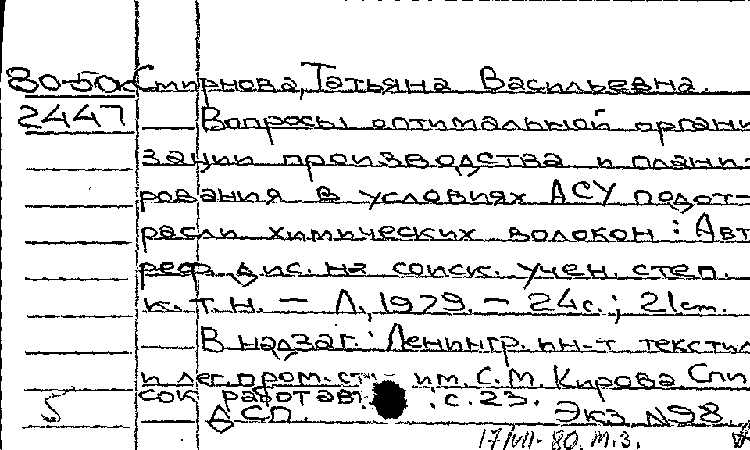 80-50к Смирнова, Татьяна Васильевна.
2447 Вопросы оптимальной органи-
зации производства и плани-
рования в условиях АСУ подот-
расли химических волокон : Авт
реф. дис. на соиск. учен. степ.
к. т. н. — Л., 1979. — 24 с. ; 21 см.
В надзаг. : Ленингр. ин-т текстил
и лег. пром-сти им. С. М. Кирова. Спи
сок работ авт. : с. 23.
5 ДСП. Экз. №98.
17/VII-80. М.З.